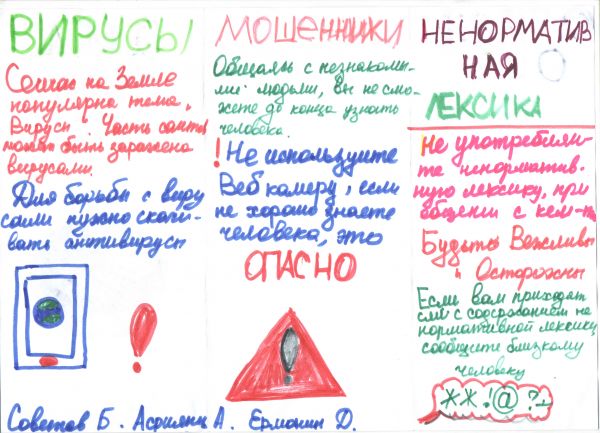 ВИРУСЫ
Сейчас на Земле
популярна тема,
Вирусы. Часть сайтов
может быть заражена
вирусами.
Для борьбы с виру
сами нужно скачи-
вать антивирусы
МОШЕННИКИ
Общаясь с незнакомы-
ми людьми, вы не смо-
жете до конца узнать
человека.
! Не используйте
Веб камеру, если
не хорошо знаете
человека, это
ОПАСНО
НЕНОРМАТИВ
НАЯ
ЛЕКСИКА
Не употребляй-
те ненорматив-
ную лексику, при
общении с кем-то
Будьте Вежливы
и Осторожны
Если вам приходят
смс с содержанием не
нормативной лексики
сообщите близкому
человеку
**!@?!
Советов Б. А. Ермонин Д.